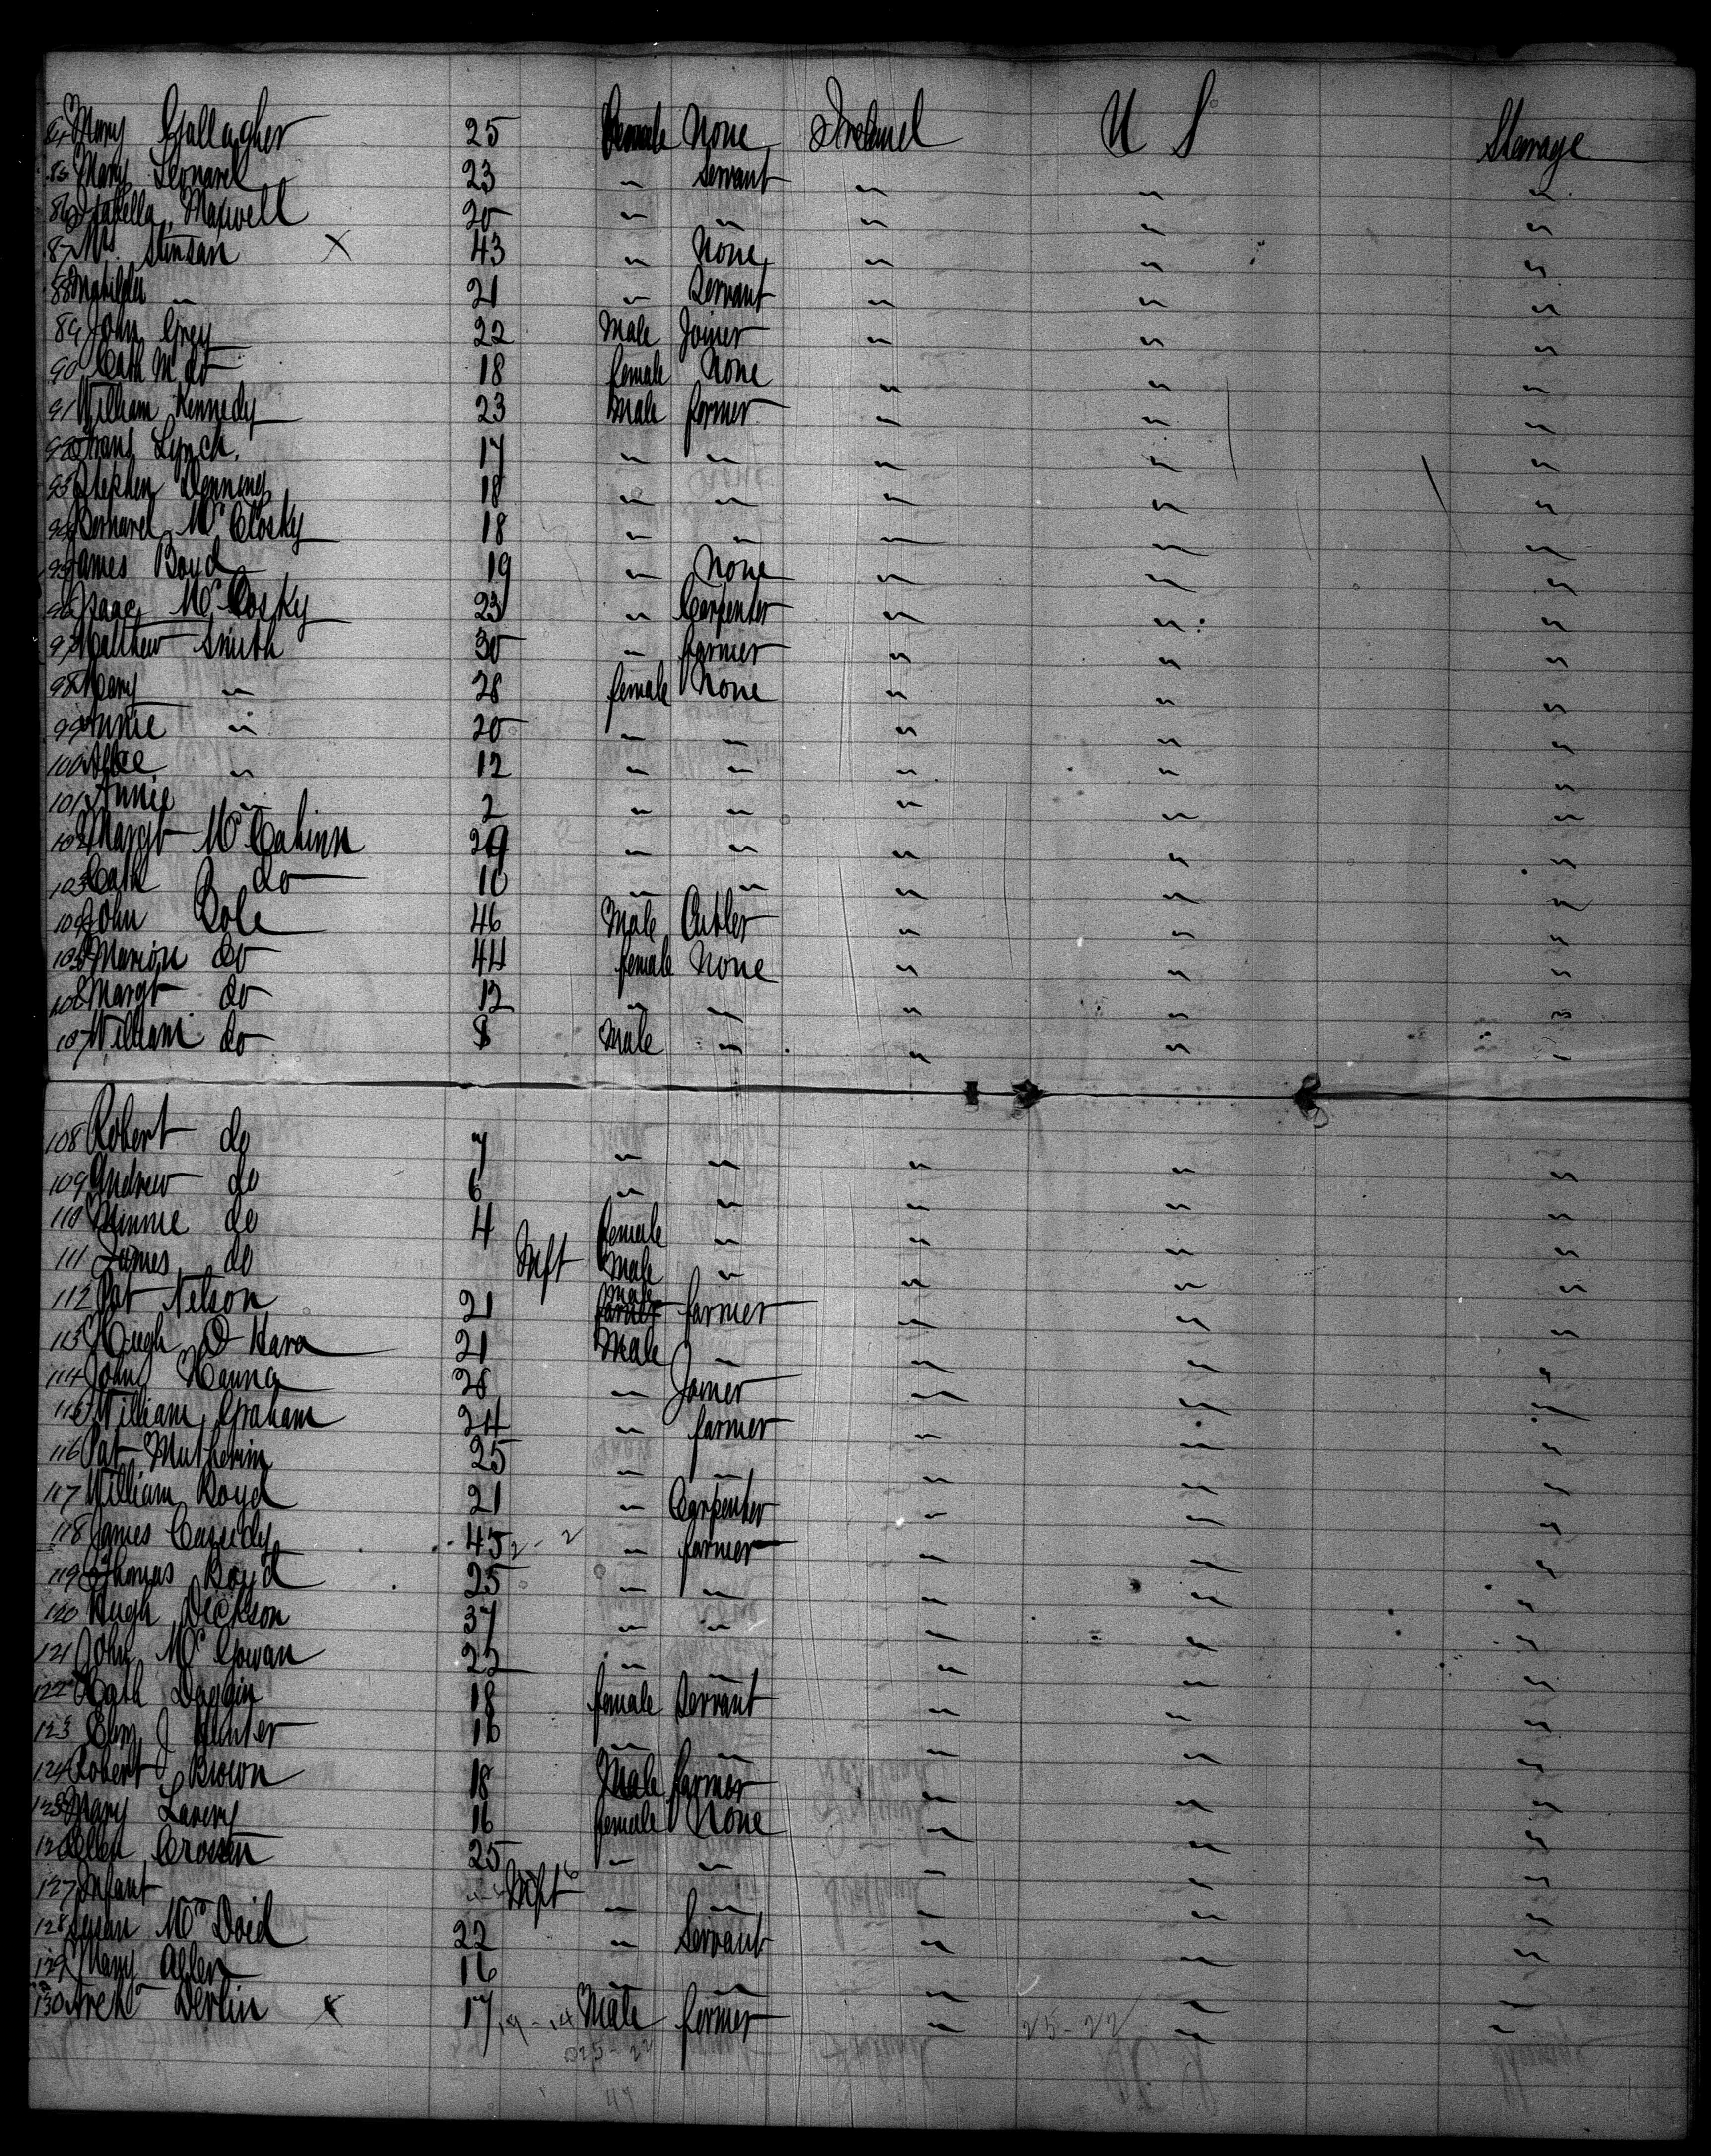 84 Mary Gallagher 25 Female None Ireland U S Steerage
85 Mary Leonard 23 " Servant " " "
86 Isabella Maxwell 20 " " " " "
87 Mrs. Stinsan X 43 " None " " "
88 Matilda " 21 " Servant " " "
89 John Grey 22 Male Joiner " " "
90 Cath M do 18 female None " " "
91 William Kennedy 23 Male farmer " " "
92 Frans Lynch. 17 " " " " "
93 Stephen Denning 18 " " " " "
94 Bernard McClosky 18 " " " " "
95 James Boyd 19 " None " " "
96 Isaac McClosky 23 " Carpenter " " "
97 Matthew Smith 30 " farmer " " "
98 Mary " 28 female None " " "
99 Annie " 20 " " " " "
100 Alice " 12 " " " " "
101 Annie " 2 " " " " "
102 Margt McCahinn 29 " " " " "
103 Cath do 10 " " " " "
104 John Bole 46 Male Cutler " " "
105 Marion do 44 female None " " "
106 Margt do 12 " " " " "
107 William do 8 Male " " " "
108 Robert do 7 " " " " "
109 Andrew do 6 " " " " "
110 Minnie do 4 female " " " "
111 James do Inft Male " " " "
112 Pat Nelson 21 Male farmer " " "
113 Hugh O Hara 21 Male " " " "
114 John Hanna 28 " Joiner " " "
115 William Graham 24 " farmer " " "
116 Pat Mutherin 25 " " " " "
117 William Boyd 21 " Carpenter " " "
118 James Cassidy 45 2-2 " farmer " " "
119 Thomas Boyd 25 " " " " "
120 Hugh Dickson 37 " " " " "
121 John McGowan 22 " " " " "
122 Cath Duggin 18 female Servant " " "
123 Eliza J Hunter 16 " " " " "
124 Robert Brown 18 Male farmer " " "
125 Mary Lavery 16 female None " " "
126 Ellen Crossen 25 " " " " "
127 Infant Inft " " " " "
128 Susan McDaid 22 " Servant " " "
129 Mary Allen 16 " " " " "
130 Derlin X 17 19-14 Male farmer " 25-22 " "
25-22
47